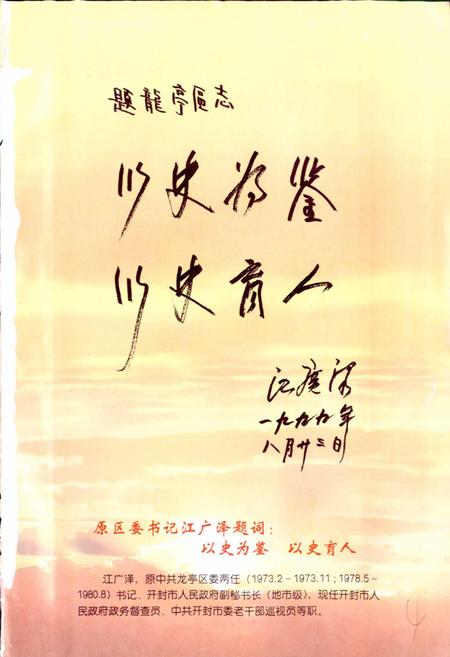 题龍亭区志
以史为鉴
以史育人
江广泽
一九九九年
八月廿三日
原区委书记江广泽题词：
以史为鉴 以史育人
江广泽，原中共龙亭区委两任（1973.2～1973.11；1978.5～
1980.8）书记、开封市人民政府副秘书长（地市级），现任开封市人
民政府政务督查员、中共开封市委老干部巡视员等职。